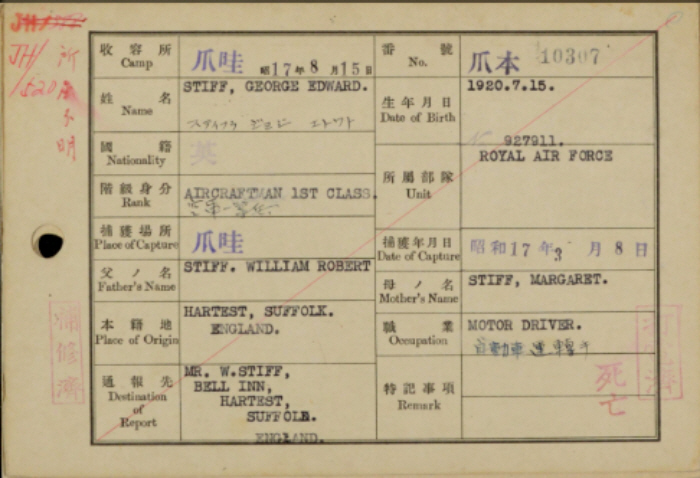 JH/
JH/
520
所属不明
收容所
Camp
爪哇
昭17年8月15日
番號
No.
爪本 10307
姓名
Name
STIFF, GEORGE EDWARD.
スティフ ジョージ エドワド
生年月日
Date of Birth
1920.7.15.
國籍
Nationality
英
所屬部隊
Unit
927911.
ROYAL AIR FORCE
階級身分
Rank
AIRCRAFTMAN 1ST CLASS.
捕獲場所
Place of Capture
爪哇
捕獲年月日
Date of Capture
昭和17年3月8日
父ノ名
Father's Name
STIFF. WILLIAM ROBERT
母ノ名
Mother's Name
STIFF, MARGARET.
本籍地
Place of Origin
HARTEST, SUFFOLK.
ENGLAND.
職業
Occupation
MOTOR DRIVER.
自動車運轉手
通報先
Destination
of
Report
MR. W.STIFF,
BELL INN,
HARTEST,
SUFFOLK.
ENGLAND.
特記事項
Remark
死亡